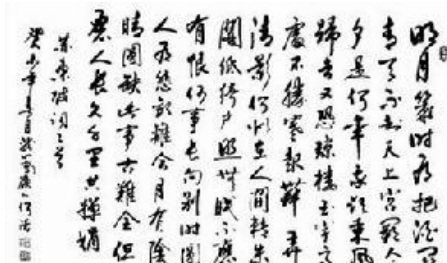 明月幾時有把酒問
青天不知天上宮闕今
夕是何年我欲乘風
歸去又恐瓊樓玉宇高
處不勝寒起舞弄
清影何似在人間轉朱
閣低綺戶照無眠不應
有恨何事長向別時圓
人有悲歡離合月有陰
晴圓缺此事古難全但
願人長久千里共嬋娟
蘇東坡詞
癸未年